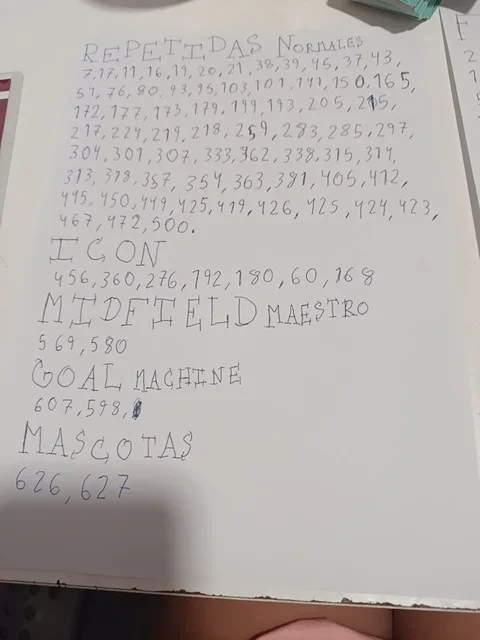 REPETIDAS NORMALES
7,17,11,16,19,20,21,38,39,45,37,43,
51,76,80,93,95,103,101,141,150,165,
172,177,173,179,199,193,205,215,
217,224,219,218,259,283,285,297,
304,301,307,333,362,338,315,314,
313,318,357,354,363,381,405,412,
445,450,449,425,419,426,425,424,423,
467,472,500.
ICON
456,360,276,192,180,60,168
MIDFIELD MAESTRO
569,580
GOAL MACHINE
607,598,
MASCOTAS
626,627